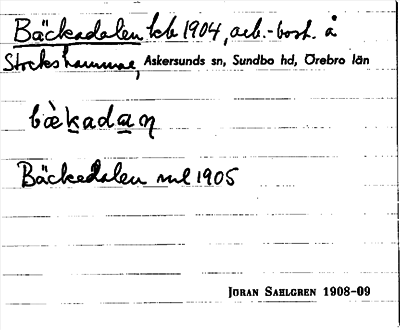 Bäckadalen kb 1904, arb.-bost. å
Stockshammar, Askersunds sn, Sundbo hd, Örebro län
bæ̀kadan
Bäckedalen ml 1905
JÖRAN SAHLGREN 1908-09